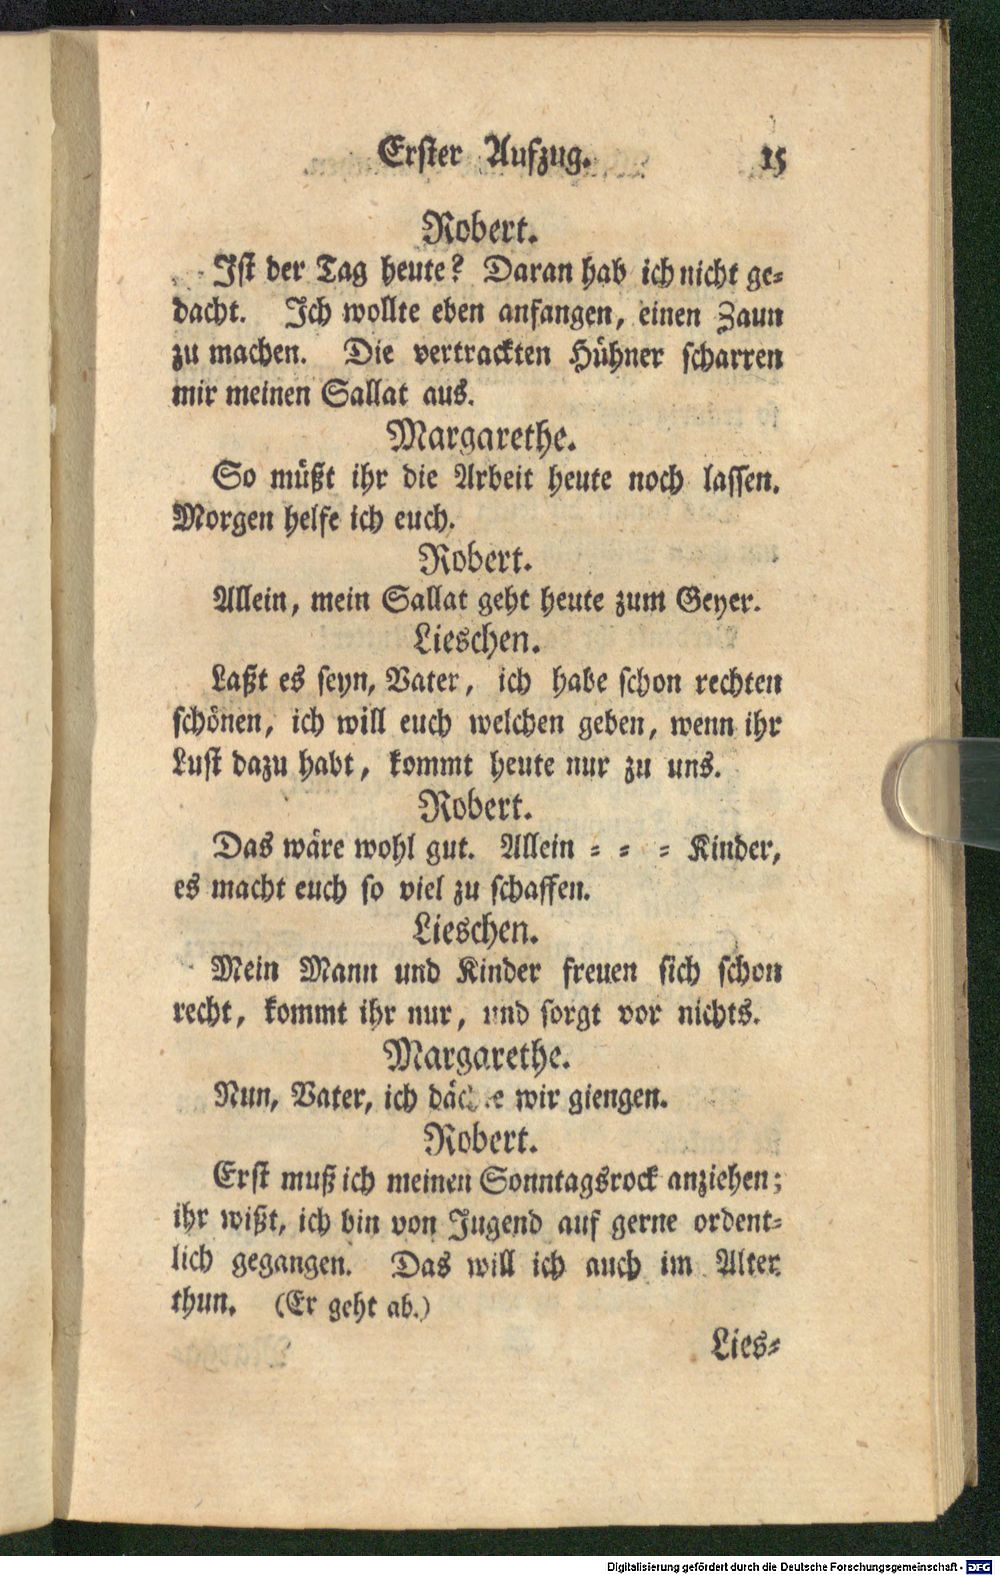 Erster Aufzug. 15
Robert.
Ist der Tag heute? Daran hab ich nicht ge-
dacht. Ich wollte eben anfangen, einen Zaun
zu machen. Die vertrackten Hühner scharren
mir meinen Sallat aus.
Margarethe.
So müßt ihr die Arbeit heute noch lassen.
Morgen helfe ich euch.
Robert.
Allein, mein Sallat geht heute zum Geyer.
Lieschen.
Laßt es seyn, Vater, ich habe schon rechten
schönen, ich will euch welchen geben, wenn ihr
Lust dazu habt, kommt heute nur zu uns.
Robert.
Das wäre wohl gut. Allein - - - Kinder,
es macht euch so viel zu schaffen.
Lieschen.
Mein Mann und Kinder freuen sich schon
recht, kommt ihr nur, und sorgt vor nichts.
Margarethe.
Nun, Vater, ich dächte wir giengen.
Robert.
Erst muß ich meinen Sonntagsrock anziehen;
ihr wißt, ich bin von Jugend auf gerne ordent-
lich gegangen. Das will ich auch im Alter
thun. (Er geht ab.)
Lies-
Digitalisierung gefördert durch die Deutsche Forschungsgemeinschaft - DFG